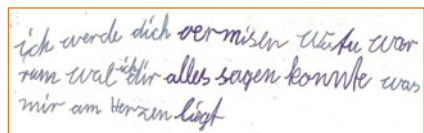 ich werde dich vermisen wistu war
rum wal ich dir alles sagen konnte was
mir am Herzen liegt